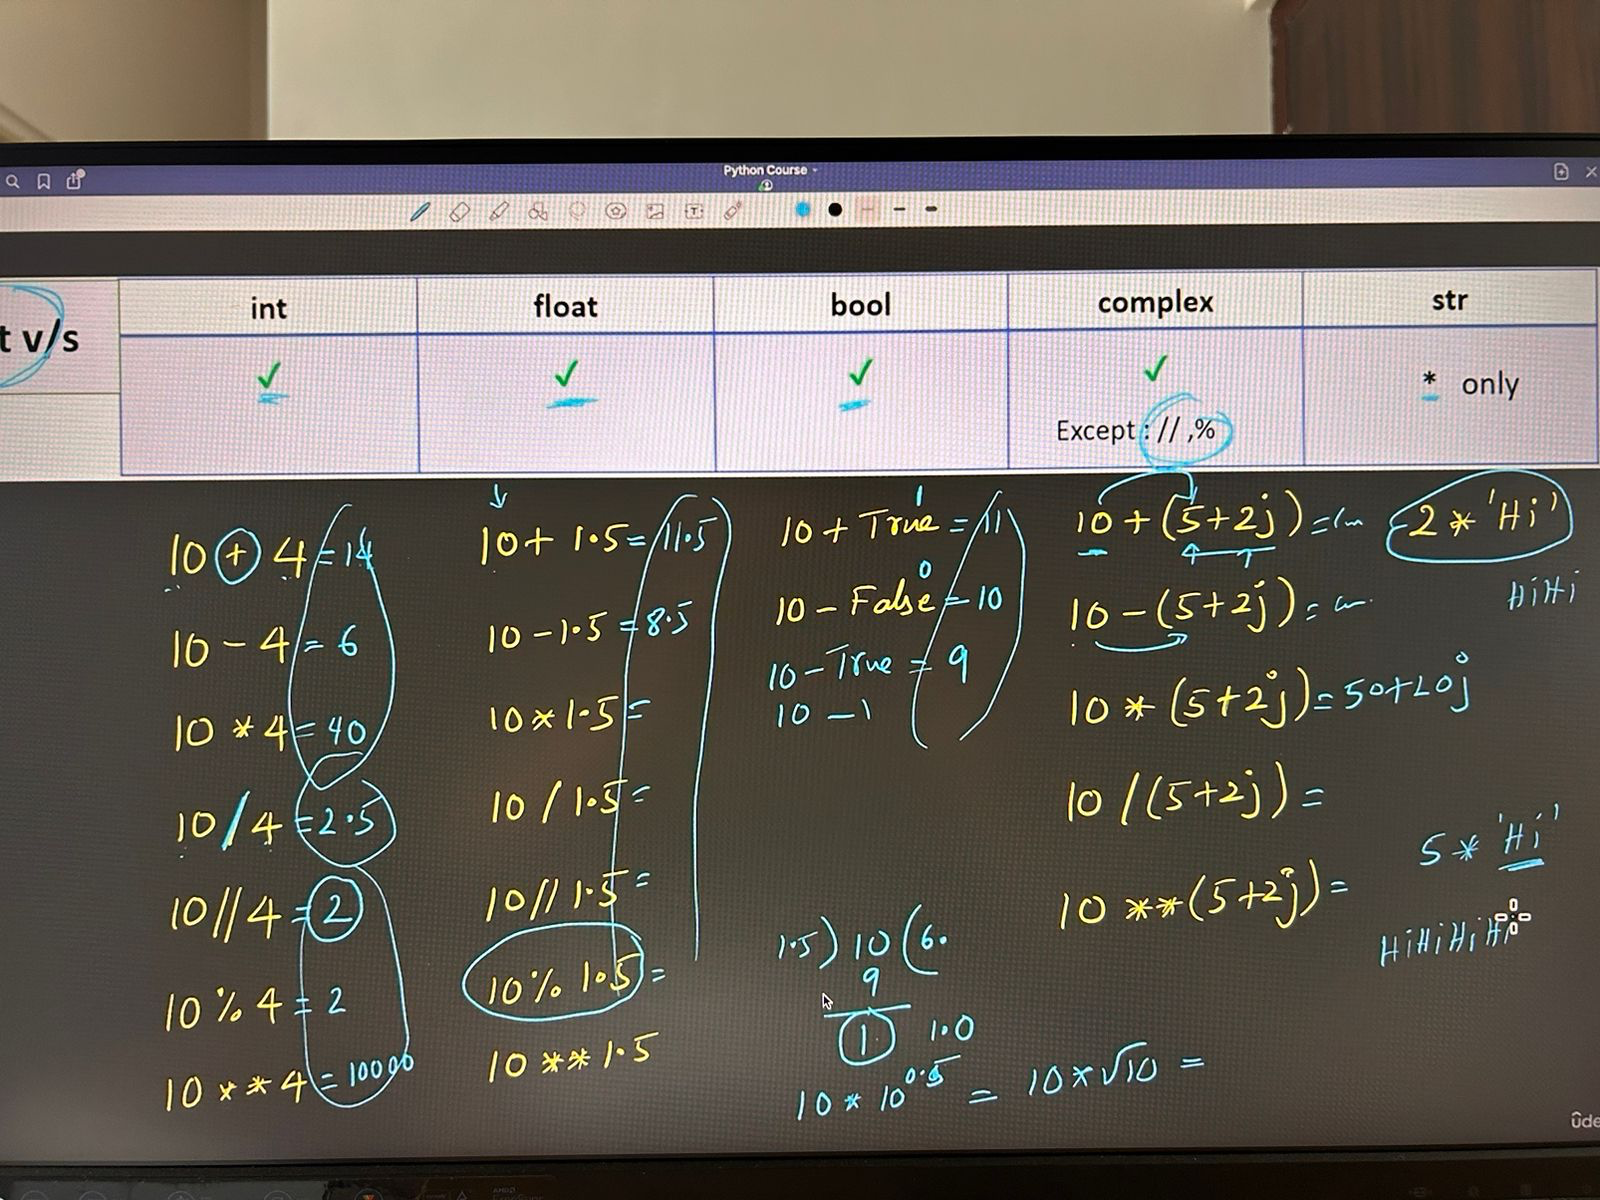 Python Course
t v/s
int
float
bool
complex
str
Except : // ,%
* only
10 + 4 = 14
10 - 4 = 6
10 * 4 = 40
10 / 4 = 2.5
10 // 4 = 2
10 % 4 = 2
10 ** 4 = 10000
10 + 1.5 = 11.5
10 - 1.5 = 8.5
10 * 1.5 =
10 / 1.5 =
10 // 1.5 =
10 % 1.5 =
10 ** 1.5
1
10 + True = 11
0
10 - False = 10
10 - True = 9
10 - 1
1.5 ) 10 ( 6.
9
1 1.0
10 * 10^0.5 = 10 * √10 =
10 + (5+2j) =
10 - (5+2j) =
10 * (5+2j) = 50+20j
10 / (5+2j) =
10 ** (5+2j) =
2 * 'Hi'
HiHi
5 * 'Hi'
HiHiHiHi
ûde